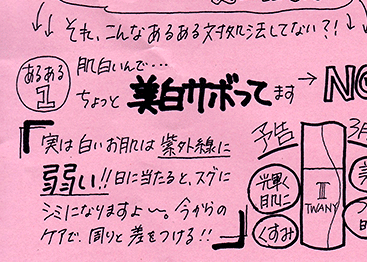 それ、こんなあるある対処法してない?!
あるある
1
肌白いんで・・・
ちょっと 美白サボってます → NO
『実は白いお肌は紫外線に
弱い!!日に当たると、スグに
シミになりますよ〜。今からの
ケアで、周りと差をつける!!』
予告
3月
輝く
肌に
くすみ
III
TWANY
美